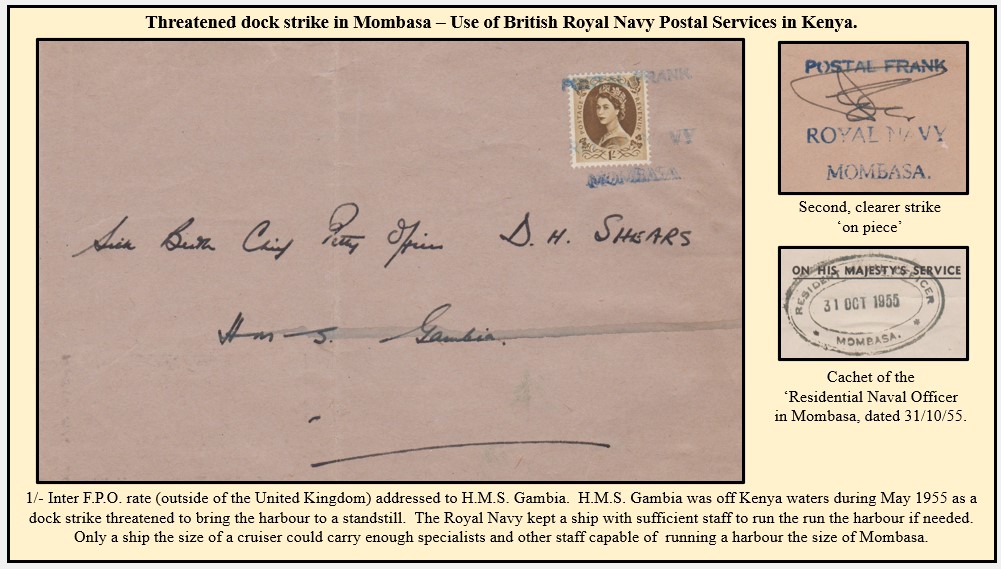 Threatened dock strike in Mombasa – Use of British Royal Navy Postal Services in Kenya.
POSTAL FRANK
POSTAGE REVENUE
1/-
VY
MOMBASA
Sick Berth Chief Petty Officer D. H. SHEARS
H.M.S. Gambia.
POSTAL FRANK
ROYAL NAVY
MOMBASA.
Second, clearer strike
‘on piece’
ON HIS MAJESTY'S SERVICE
RESIDENT NAVAL OFFICER
31 OCT 1955
* MOMBASA. *
Cachet of the
‘Residential Naval Officer
in Mombasa, dated 31/10/55.
1/- Inter F.P.O. rate (outside of the United Kingdom) addressed to H.M.S. Gambia. H.M.S. Gambia was off Kenya waters during May 1955 as a
dock strike threatened to bring the harbour to a standstill. The Royal Navy kept a ship with sufficient staff to run the run the harbour if needed.
Only a ship the size of a cruiser could carry enough specialists and other staff capable of running a harbour the size of Mombasa.